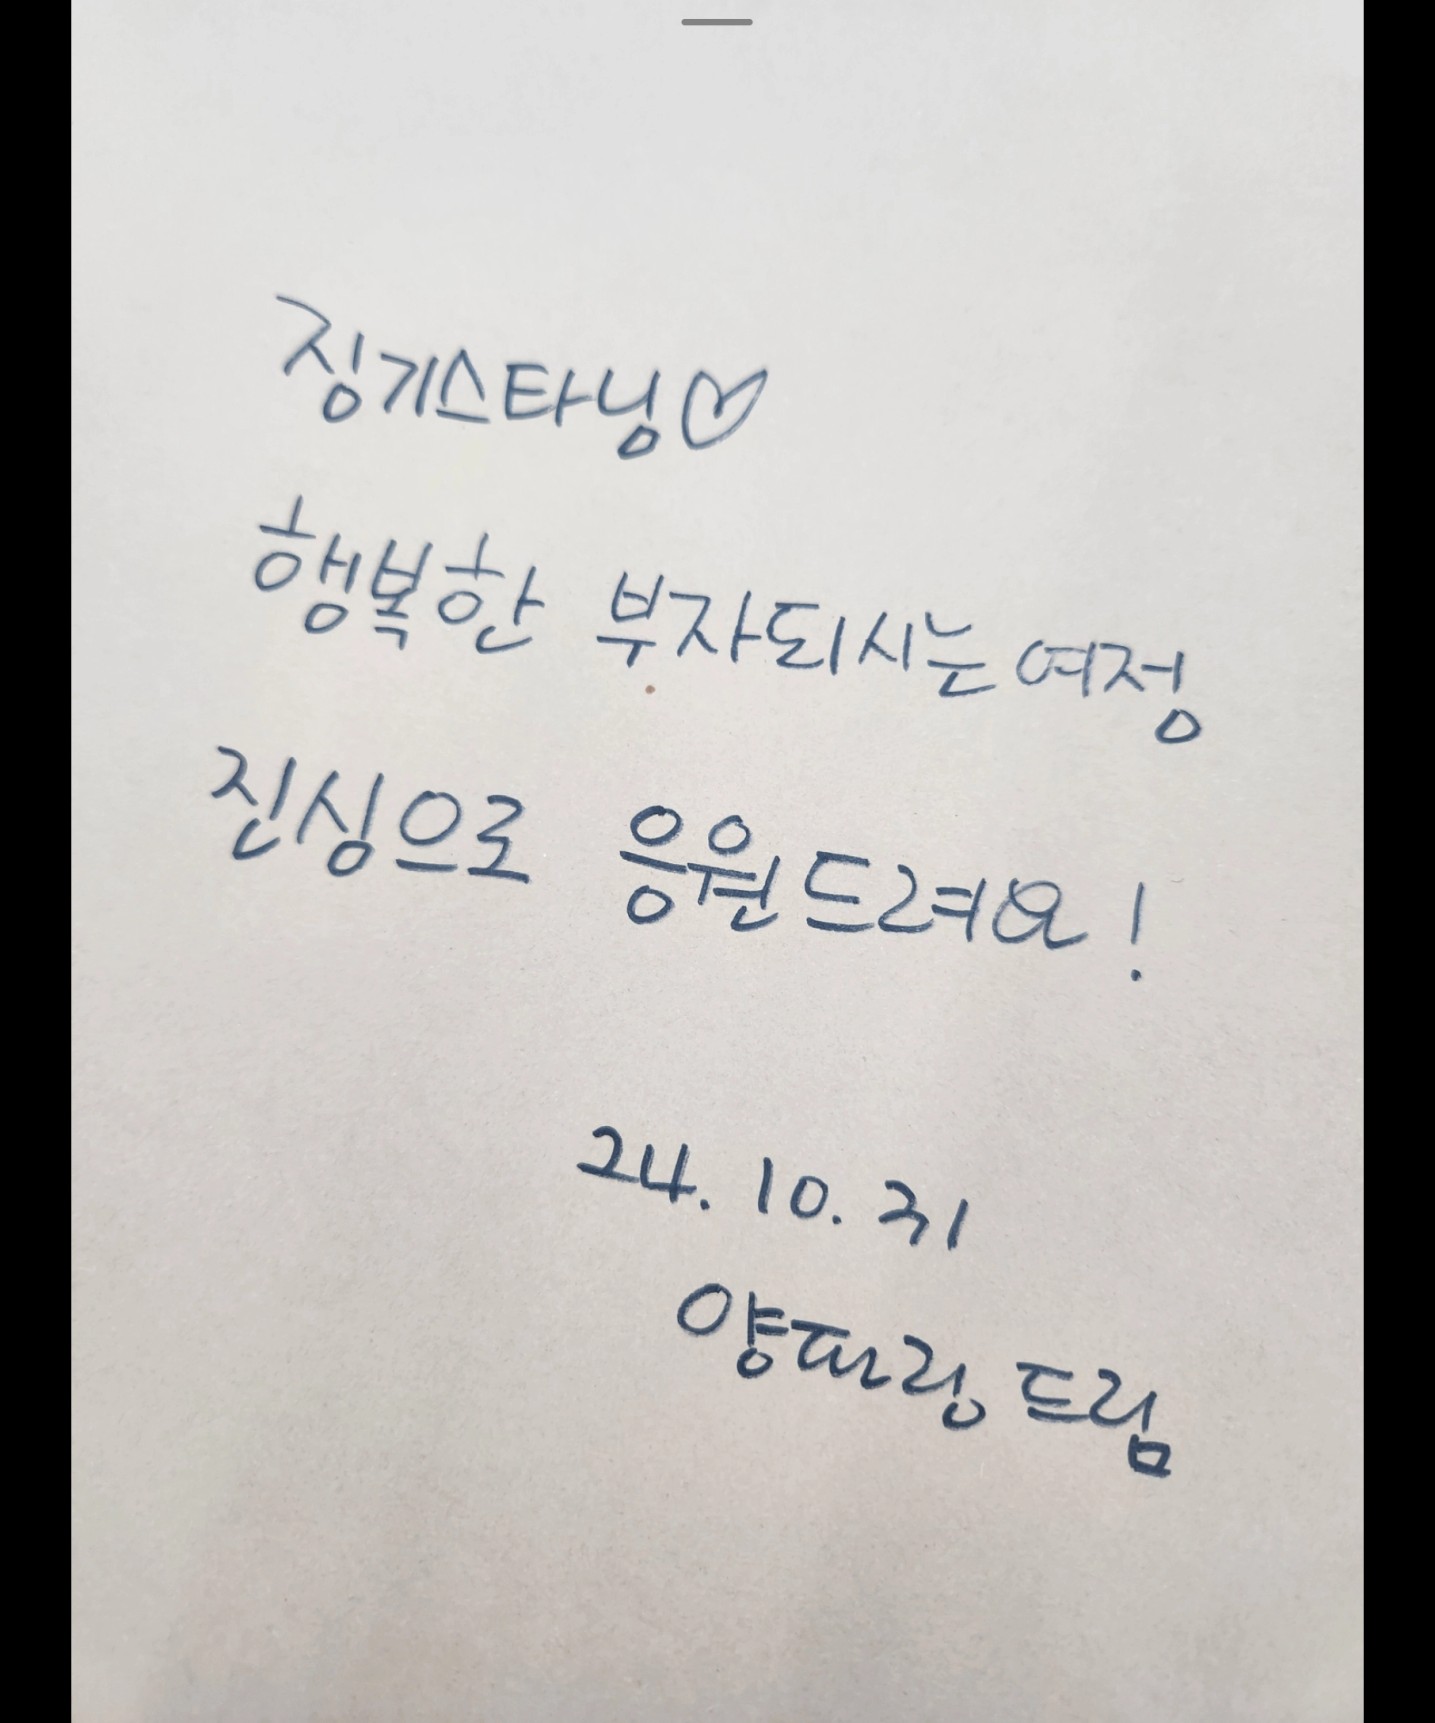 징기스타님♡
행복한 부자되시는 여정
진심으로 응원드려요!
24. 10. 31
양파링 드림